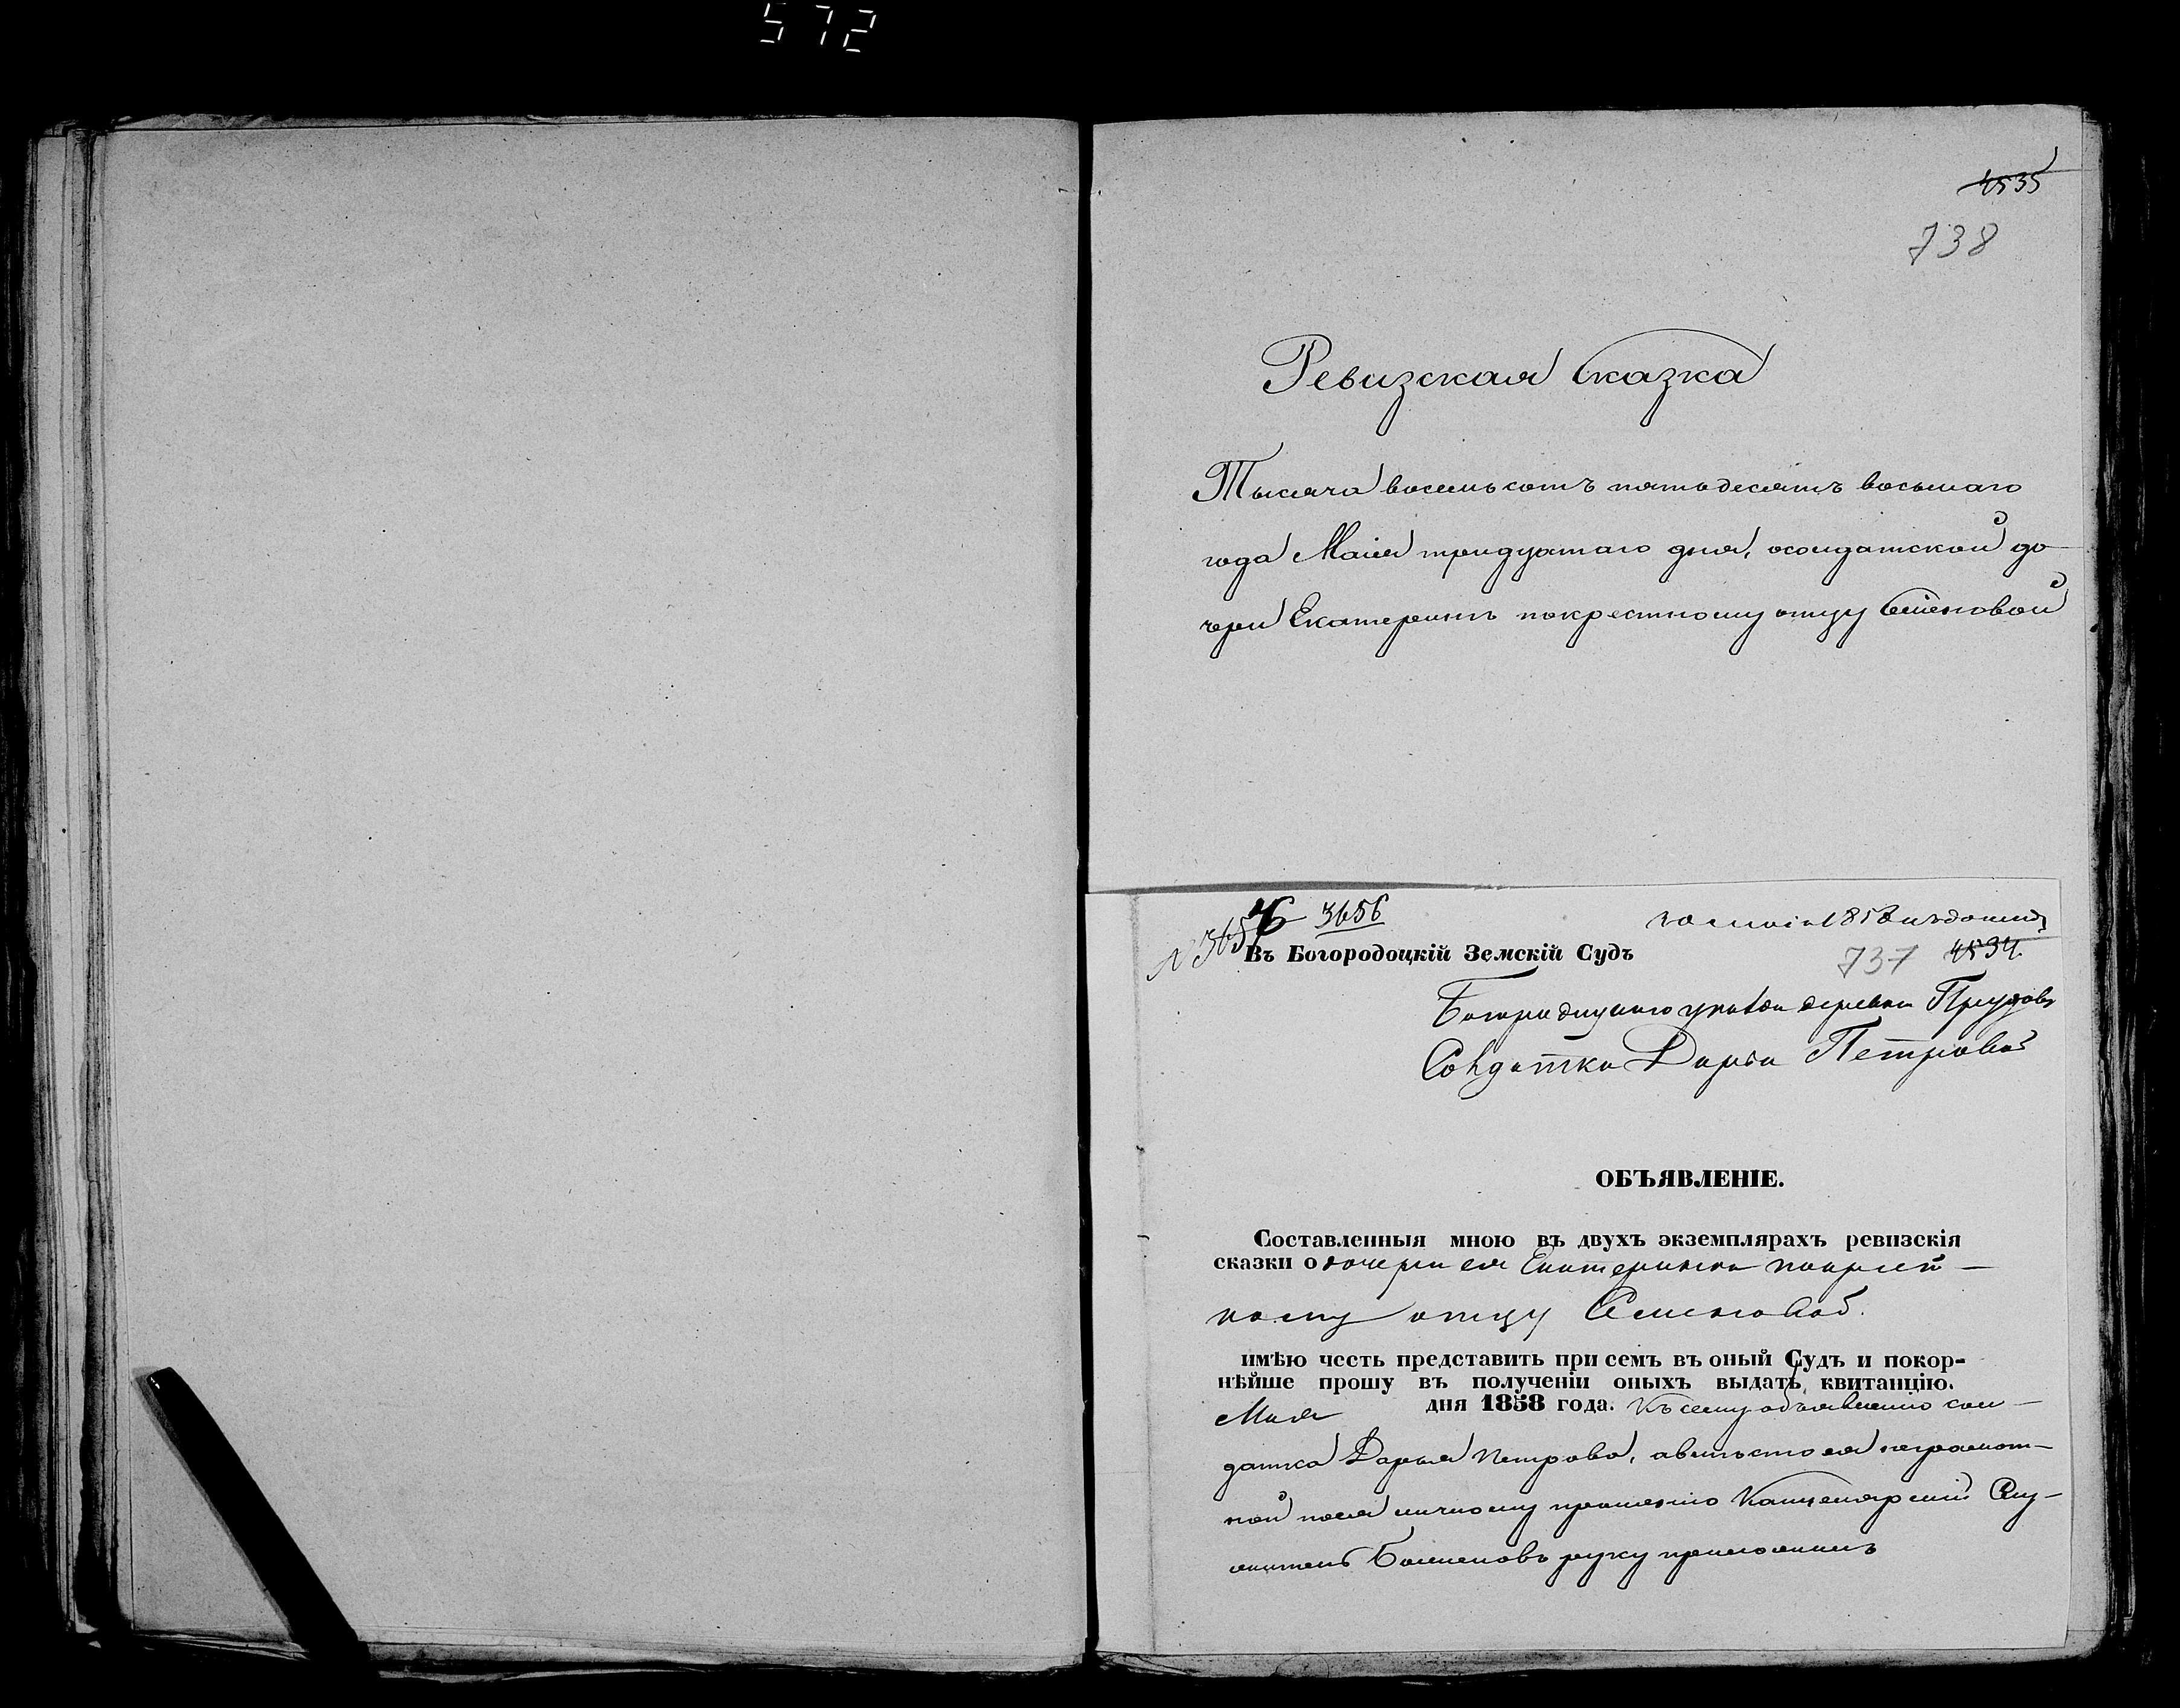 572
4535
738
Ревизская сказка
Тысяча восемьсотъ пятьдесятъ восьмаго
года Маія тридцатаго дня, осолдатской до
чери Екатеринѣ покрестному отцу Семеновой
№ 3656 3656
30 маія 1858
Въ Богородоцкій Земскій Судъ 737 4534
Богородицкаго уѣзда деревни Прудовъ
Солдатки Дарьи Петровой
ОБЪЯВЛЕНІЕ.
Составленныя мною въ двухъ экземплярахъ ревизскія
сказки о дочери ея Екатерины покрест-
ному отцу Семеновой.
имѣю честь представить при семъ въ оный Судъ и покор-
нѣйше прошу въ полученіи оныхъ выдать квитанцію.
Мая дня 1858 года. Къ сему объявленію сол-
датка Дарья Петрова, авмѣсто ея неграмот-
ной поея личному прошенію Канцелярскій Слу-
житель руку приложилъ